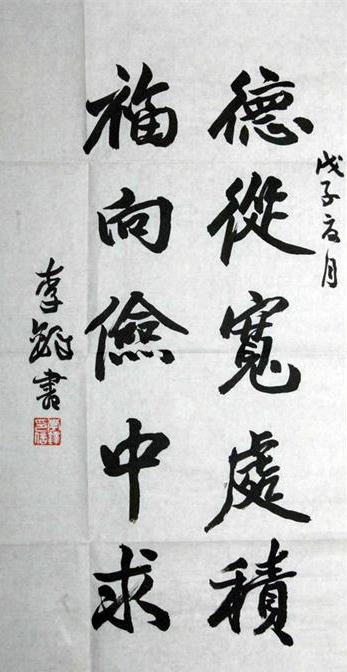 戊子夏月
德從寬處積
福向儉中求
李書